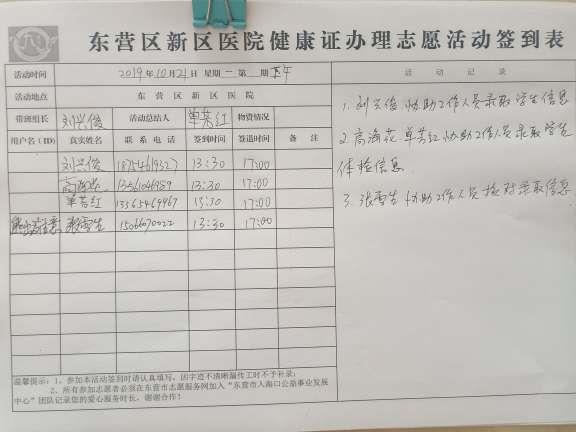 东营区新区医院健康证办理志愿活动签到表
活动时间 2019年10月21日 星期一 第 期 下午
活动地点 东营区新区医院
带班组长 刘兴俊 活动总结人 单芳红 物资情况
用户名(ID) 真实姓名 联系电话 签到时间 签退时间 备注
刘兴俊 18754619327 13:30 17:00
高海花 13:30 17:00
单芳红 13365469967 13:30 17:00
张雪生 15066070022 13:30 17:00
温馨提示:1、参加本活动签到时请认真填写,因字迹不清晰漏传工时不予补录;
2、所有参加志愿者必须在东营市志愿服务网加入“东营市人海口公益事业发展
中心”团队记录您的爱心服务时长,谢谢合作!
活动记录
1.刘兴俊协助工作人员录取学生信息
2.高海花 单芳红协助工作人员录取学生
体检信息.
3.张雪生协助工作人员核对录取信息.